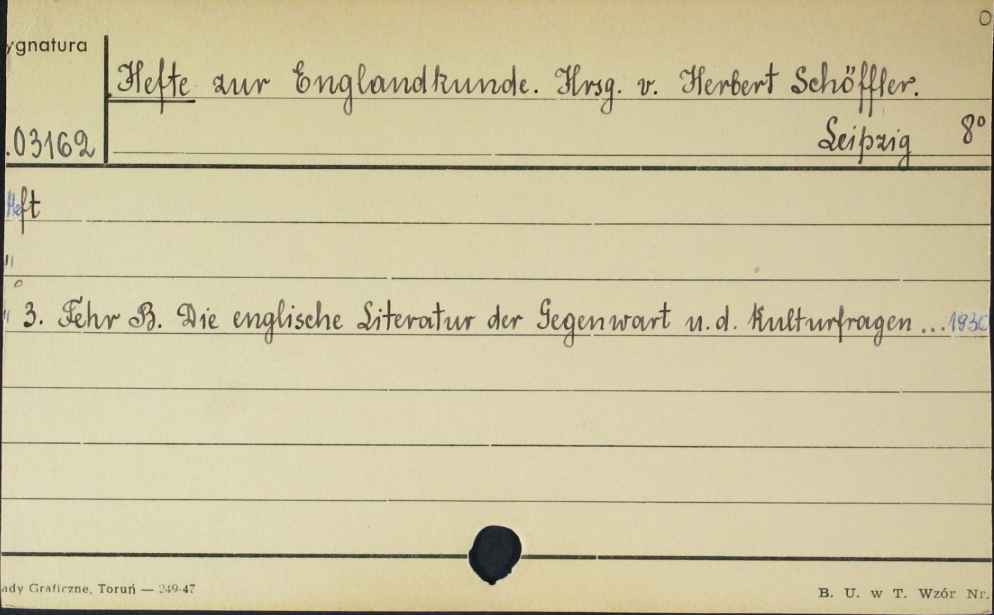 0
ygnatura
Hefte zur Englandkunde. Hrsg. v. Herbert Schöffler.
.03162
Leipzig 8°
Heft
"
" 3. Fehr B. Die englische Literatur der Gegenwart u. d. Kulturfragen ... 1930
ady Graficzne, Toruń — 249-47
B. U. w T. Wzór Nr.